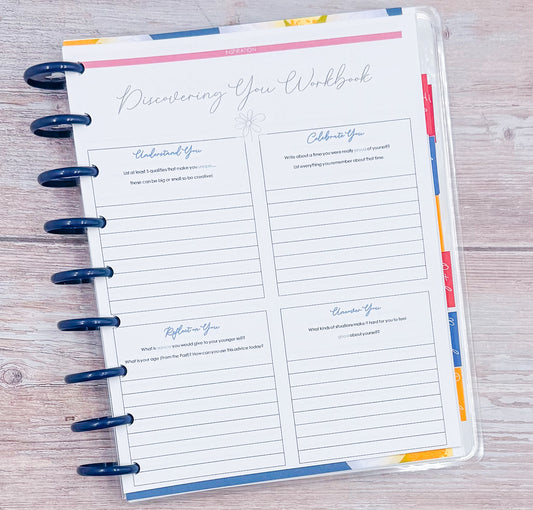 Discovering You Workbook
Understand You
List at least 5 qualities that make you unique...
these can be big or small so be creative!
Celebrate You
Write about a time you were really proud of yourself?
List everything you remember about that time.
Reflect on You
What is advice you would give to your younger self?
What is your age (From the Past)? How can you use this advice today?
Uncover You
What kinds of situations make it hard for you to feel
good about yourself?